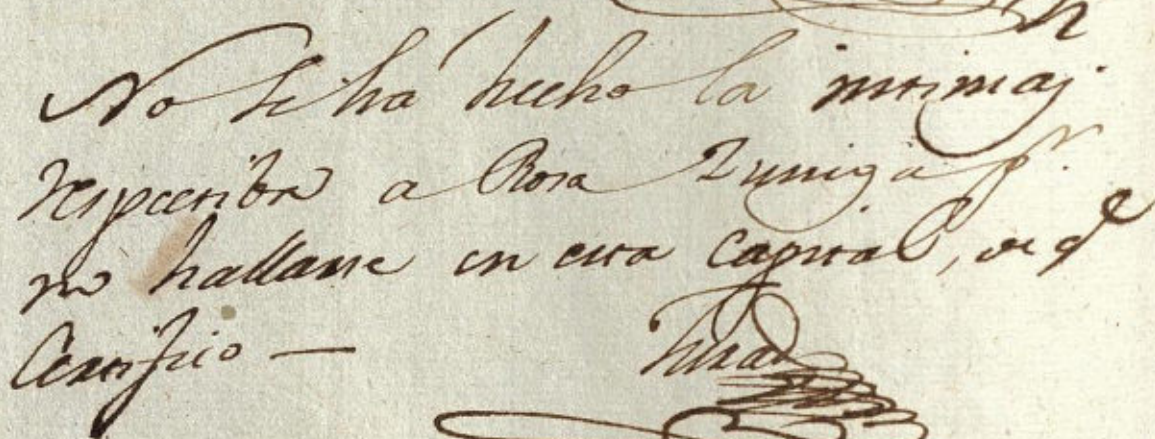 No se ha hecho la intimaz.
respectiba a Rosa Zuniga pr.
no hallarse en esta capital, de qe
Certifico —